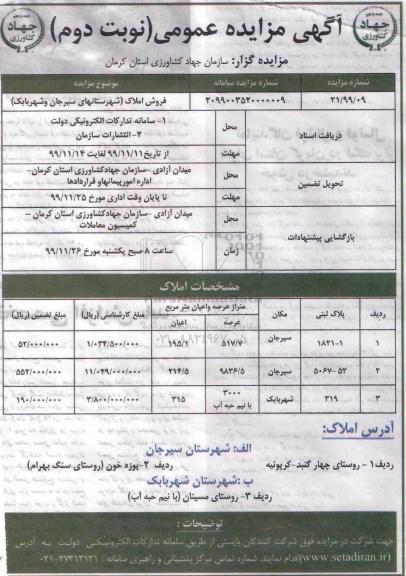 جهاد کشاورزی
آگهی مزایده عمومی(نوبت دوم)
جهاد کشاورزی
مزایده گزار: سازمان جهاد کشاورزی استان کرمان
شماره مزایده
شماره مزایده سامانه
موضوع مزایده
۲۱/۹۹/۰۹
۲۰۹۹۰۰۳۵۲۰۰۰۰۰۰۹
فروش املاک (شهرستانهای سیرجان وشهربابک)
دریافت اسناد
محل
۱- سامانه تدارکات الکترونیکی دولت
۲-انتشارات سازمان
مهلت
از تاریخ ۹۹/۱۱/۱۱ لغایت ۹۹/۱۱/۱۴
تحویل تضمین
محل
میدان آزادی –سازمان جهادکشاورزی استان کرمان-
اداره امورپیمانهاو قراردادها
مهلت
تا پایان وقت اداری مورخ ۹۹/۱۱/۲۵
بازگشایی پیشنهادات
محل
میدان آزادی –سازمان جهادکشاورزی استان کرمان –
کمیسیون معاملات
زمان
ساعت ۸ صبح یکشنبه مورخ ۹۹/۱۱/۲۶
مشخصات املاک
ردیف
پلاک ثبتی
مکان
متراژ عرصه واعیان متر مربع
مبلغ کارشناسی (ریال)
مبلغ تضمین (ریال)
عرصه
اعیان
۱
۱۸۲۱-۱
سیرجان
۵۱۷/۷
۱۹۵/۱
۱/۰۳۴/۵۰۰/۰۰۰
۵۲/۰۰۰/۰۰۰
۲
۵۰۶۷-۵۲
سیرجان
۹۸۳۶/۵
۲۱۴/۵
۱۱/۰۳۹/۰۰۰/۰۰۰
۵۵۲/۰۰۰/۰۰۰
۳
۳۱۹
شهربابک
۳۰۰۰
با نیم حبه آب
۳۱۵
۳/۸۰۰/۰۰۰/۰۰۰
۱۹۰/۰۰۰/۰۰۰
آدرس املاک:
الف: شهرستان سیرجان
ردیف۱ - روستای چهار گنبد-کریونیه
ردیف ۲-پوزه خون (روستای سنگ بهرام)
ب :شهرستان شهربابک
ردیف ۳- روستای مسینان (با نیم حبه آب)
توضیحات :
جهت شرکت در مزایده فوق شرکت کنندگان بایستی از طریق سامانه تدارکات الکترونیکی دولت به آدرس :
(www.setadiran.ir)اقدام نمایند. شماره تماس مرکز پشتیبانی و راهبری سامانه : ۲۷۳۱۳۱۳۱-۰۲۱